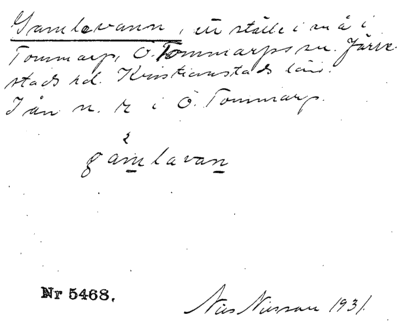 Gamlevann, ett ställe i en å i
Tommarp, Ö. Tommarps sn. Järre-
stads hd. Kristianstads län.
I ån n. r i Ö. Tommarp.
gamlavan
Nr 5468.
Nils Nilsson 1931.